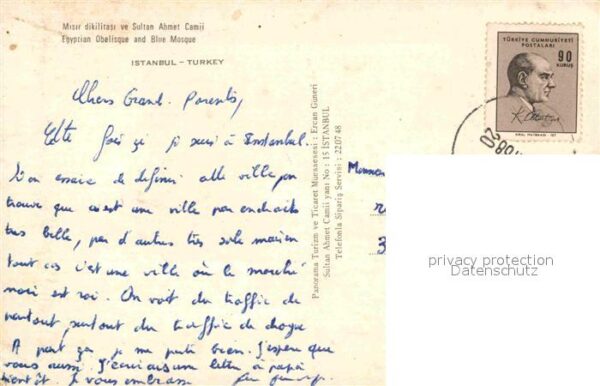 Mısır dikilitası ve Sultan Ahmet Camii
Egyptian Obelisque and Blue Mosque
ISTANBUL - TURKEY
TÜRKİYE CUMHURİYETİ
POSTALARI
90
KURUŞ
K. Atatürk
Chers Grand. Parents,
Cette fois ci je suis à Istanbul.
L'on essaie de définir elle ville, on
trouve que c'est une ville par endroits
très belle, par d'autres très sale mais en
tout cas c'est une ville où le marché
noir est roi. On voit du traffic de
partout, surtout du traffic de drogue
A part ça je me porte bien. J'espère que
vous aussi. J'écrirais une lettre à papa
bientôt. Je vous embrasse
Panorama Turizm ve Ticaret Muessesesi : Ercan Guneri
Sultan Ahmet Camii yanı No : 15 İSTANBUL
Telefonla Sipariş Servisi : 22 07 48
privacy protection
Datenschutz